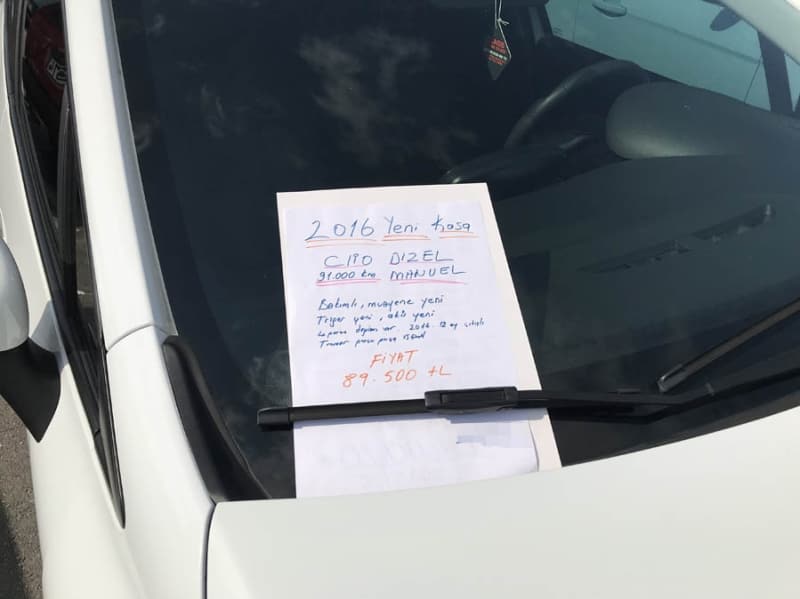 2016 Yeni Kasa
CliO DIZEL
91.000 km MANUEL
Bakımlı, muayene yeni
Triger yeni, akü yeni
değişen var 2016. 12 ay çıkışlı
FİYAT
89.500 tL